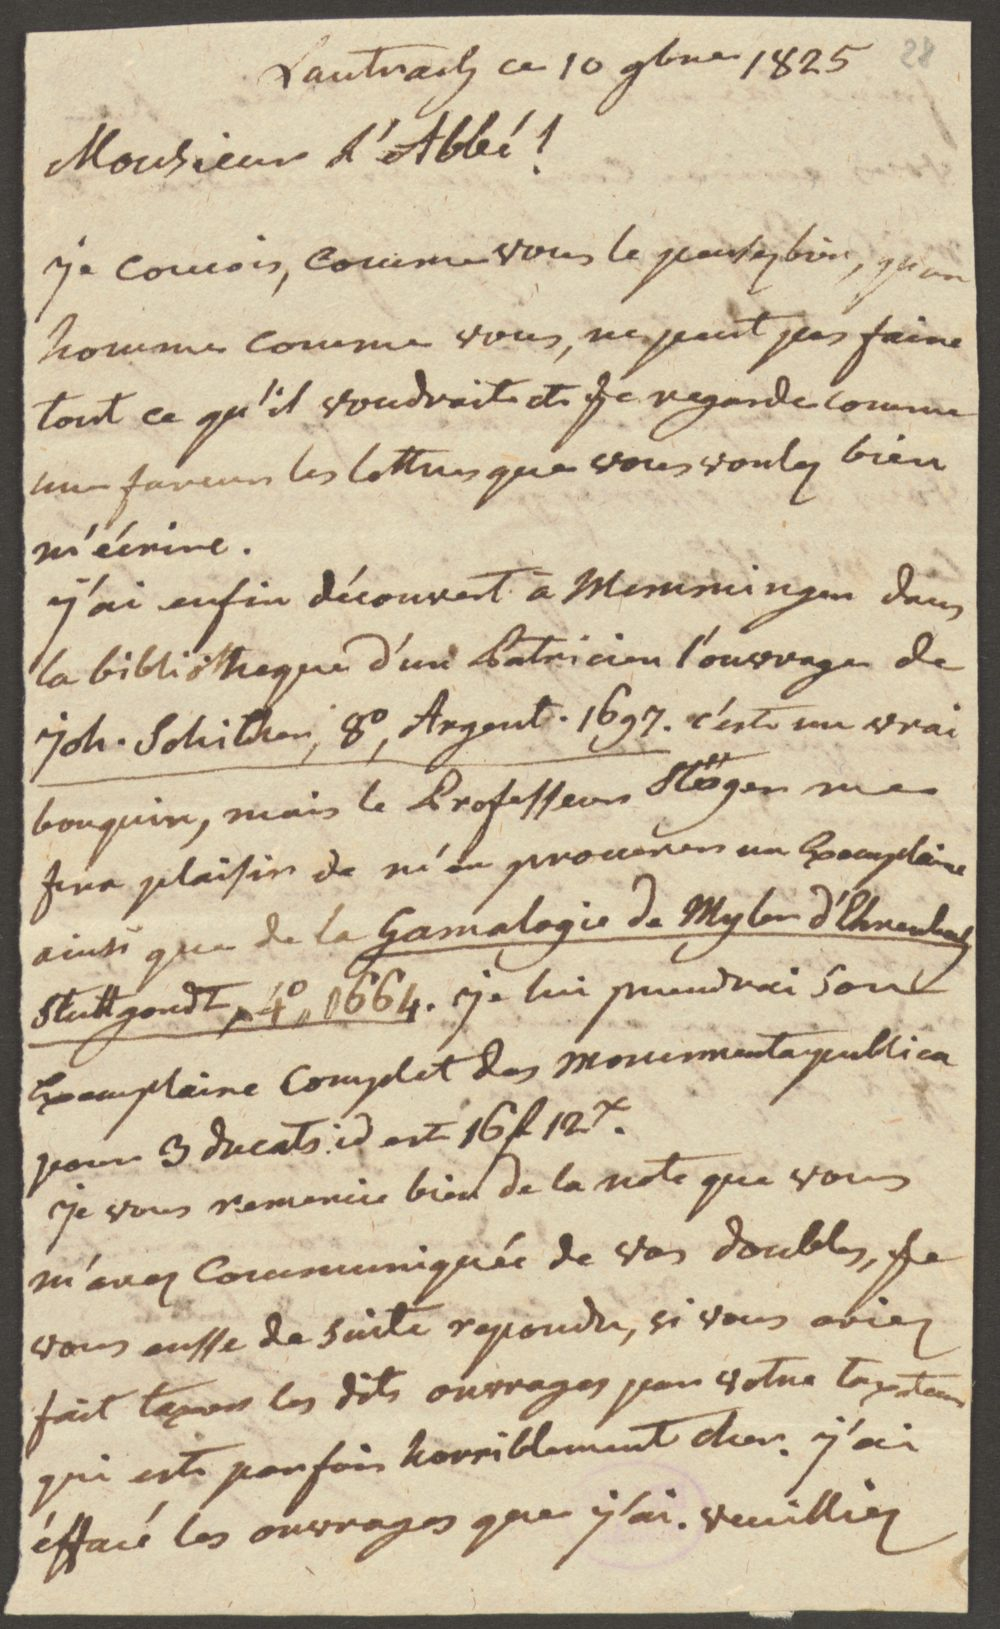 28
Lautrach ce 10 9bre 1825
Monsieur l'Abbé!
je concois, comme vous le pensez bien, qu'un
homme comme vous, ne peut pas faire
tout ce qu'il voudrait et je regarde comme
une faveur les lettres que vous voulez bien
m'éérire.
j'ai enfin découvert a Memmingen dans
la bibliotheque d'un Patricien l'ouvrage de
joh. Schilther, 8º, Argent. 1697. c'est un vrai
bouquin, mais le Professeur me
fera plaisir de m'en procurer un Exemplaire
ainsi que de la Gamalogie de Myler d'Ehrenbach
Stuttgardt, 4º, 1664. je lui prendrai son
Exemplaire complet des monumenta publica
pour 3 ducats id est 16f 12x.
je vous remercie bien de la note que vous
m'avez communiquée de vos doubles, je
vous eusse de suite repondu, si vous aviez
fait taxer les dits ouvrages par votre taxateur
qui est parfois horriblement cher. j'ai
éffacé les ouvrages que j'ai. veuilliez